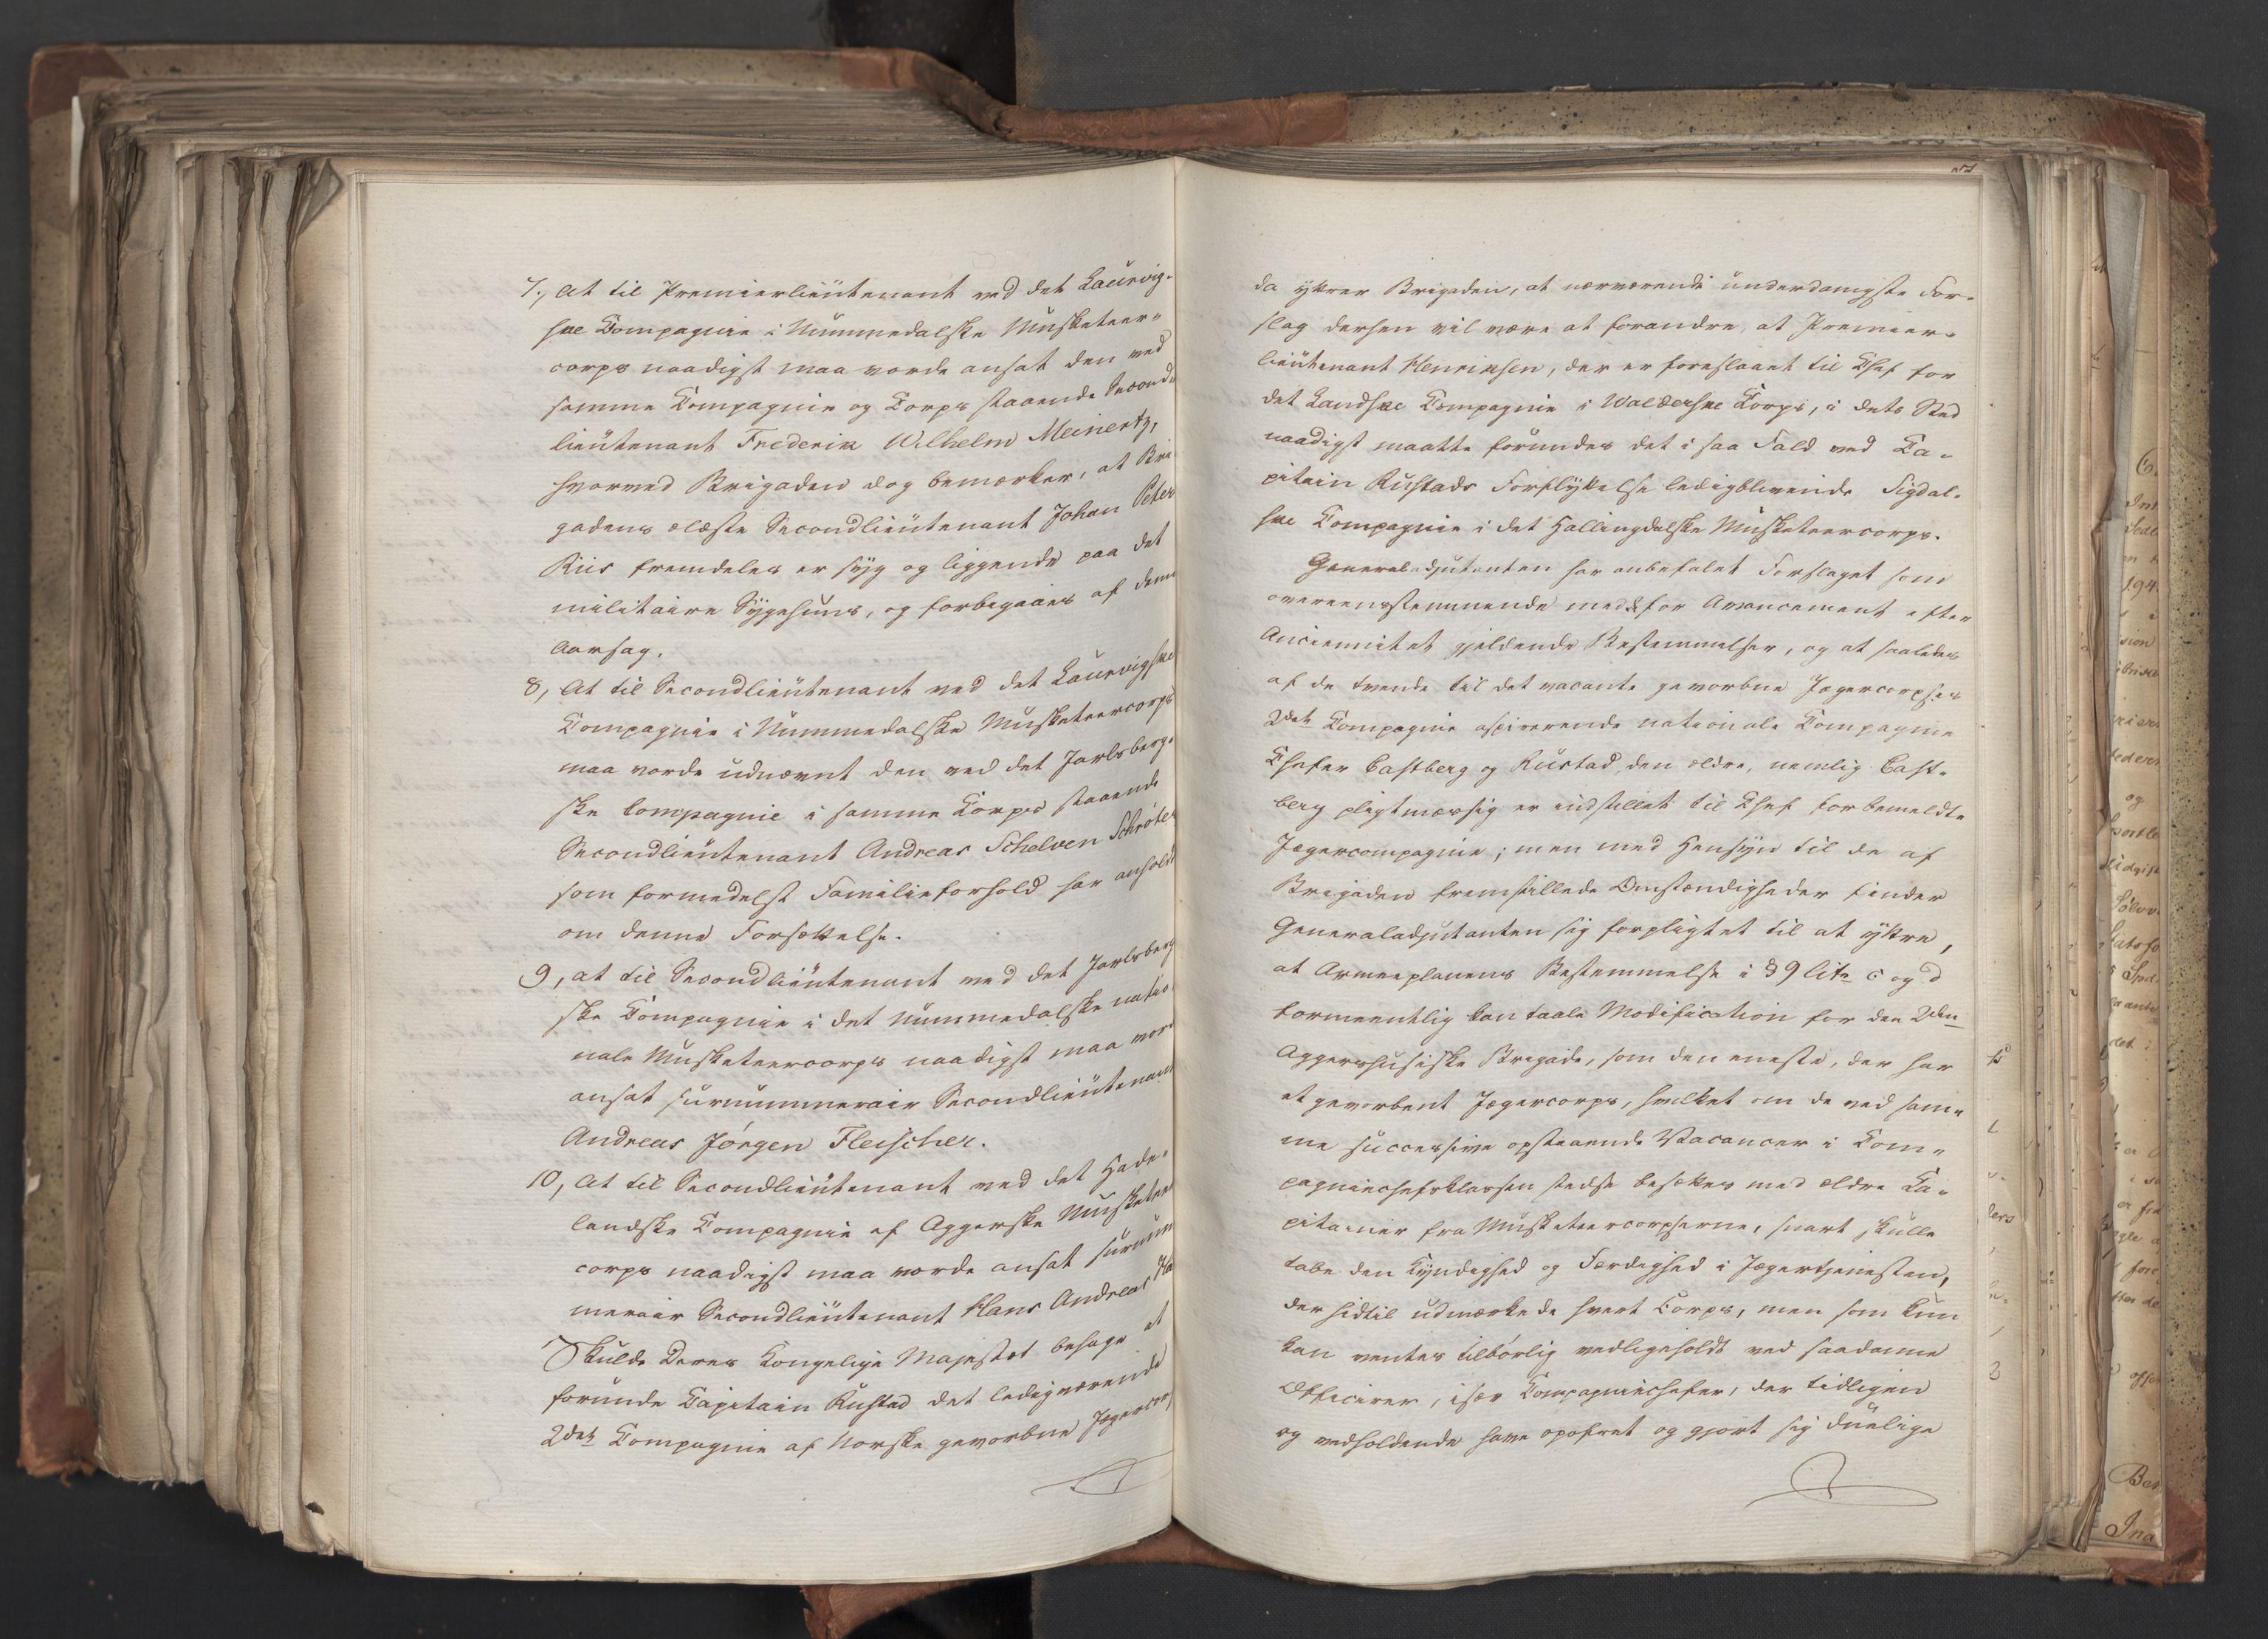 7., At til Premierlieutenant ved det Laurvig-
ske Compagnie i Nummedalske Musketeer-
corps naadigst maa vorde ansat den ved
samme Compagnie og Corps staaende Second-
lieutenant Frederik Wilhelm Meinertz,
hvorved Brigaden dog bemærker, at Bri-
gadens ældste Secondlieutenant Johan Peter
Riis fremdeles er syg og liggende paa det
militaire Sygehuus, og forbegaaes af denne
Aarsag.
8, At til Secondlieutenant ved det Laurvigske
Compagnie i Nummedalske Musketeercorps
maa vorde udnævnt den ved det Jarlsberg-
ske Compagnie i samme Corps staaende
Secondlieutenant Andreas Schelven Schrøter
som formedelst Familieforhold har anholdt
om denne Forsættelse.
9, at til Secondlieutenant ved det Jarlsberg
ske Compagnie i det Nummedalske natio-
nale Musketeercorps naadigst maa vor
ansat surnummerair Secondlieutenant
Andreas Jørgen Fleischer.
10, At til Secondlieutenant ved det Hade-
landske Compagnie af Aggerske Musketeer
corps naadigst maa vorde ansat surnum
merair Secondlieutenant Hans Andreas
Skulde Deres Kongelige Majestæt behage at
forunde Capitain Rustad det ledigværende
2det Compagnie af Norske gevorbne Jægercorps
da yttrer Brigaden, at nærværende underdanigste For-
slag derhen vil være at forandre, at Premier-
lieutenant Henriksen, der er foreslaaet til Chef for
det Landske Compagnie i Walderske Corps, i dets Sted
naadigst maatte forundes det i saa Fald ved Ca-
pitain Rustads Forflyttelse ledigblivende Sigdal-
ske Compagnie i det Hallingdalske Musketeercorps.
Generaladjutanten har anbefalet Forslaget som
overeensstemmende med de for Avancement efter
Anciennitet gjeldende Bestemmelser, og at saaledes
af de tvende til det vacante gevorbne Jægercorpses
2det Compagnie aspirerende nationale Compagnie
Chefer Castberg og Rustad, den ældre, nemlig Cast-
berg pligtmæssig er indstillet til Chef for bemeldte
Jægercompagnie; men med Hensyn til de af
Brigaden fremstillede Omstændigheder finder
Generaladjutanten sig forpligtet til at yttre,
at Armeeplanens Bestemmelse i § 9 litr c og d
formeentlig kan taale Modification for den 2den
Aggershusiske Brigade, som den eneste, der har
et gevorbent Jægercorps, hvilket om de ved sam-
me successive opstaaende Vacancer i Com-
pagniechefsklassen stedse besættes med ældre Ca-
pitainer fra Musketeercorpserne, snart skulle
tabe den Kyndighed og Færdighed i Jægertjenesten,
der hidtil udmærkede hvert Corps, men som kun
kan ventes tilbørlig vedligeholdt ved saadanne
Officerer, især Compagniechefer, der tidligen
og vedholdende have opofret og gjort sig duelige